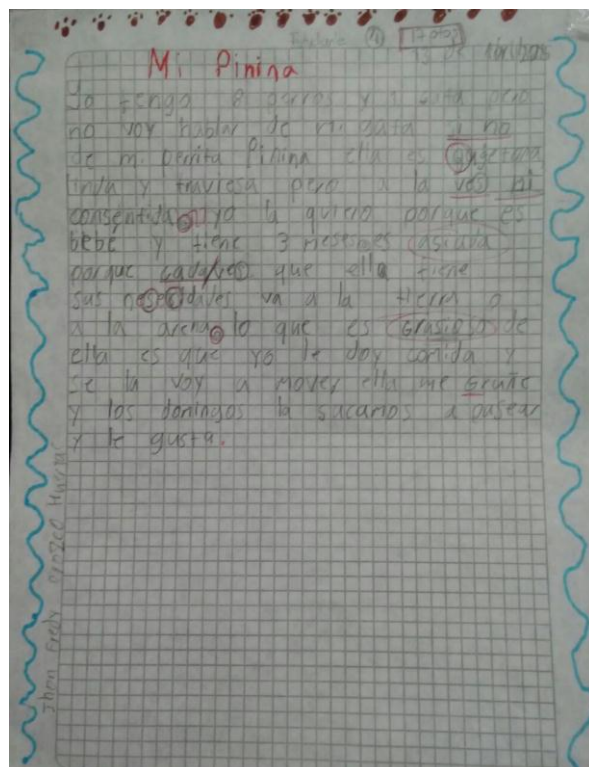 Mi Pinina
Yo tengo 8 perros y 1 gata pero
no voy hablar de mi gata si no
de mi perrita Pinina ella es
linda y traviesa pero a la ves mi
consentida yo la quiero porque es
bebé y tiene 3 meses es
porque cada ves que ella tiene
sus nesesidades va a la tierra o
a la arena lo que es Grasioso de
ella es que yo le doy comida y
se la voy a mover ella me Gruñe
y los domingos la sacamos a pasear
y le gusta.
Jhon Fredy